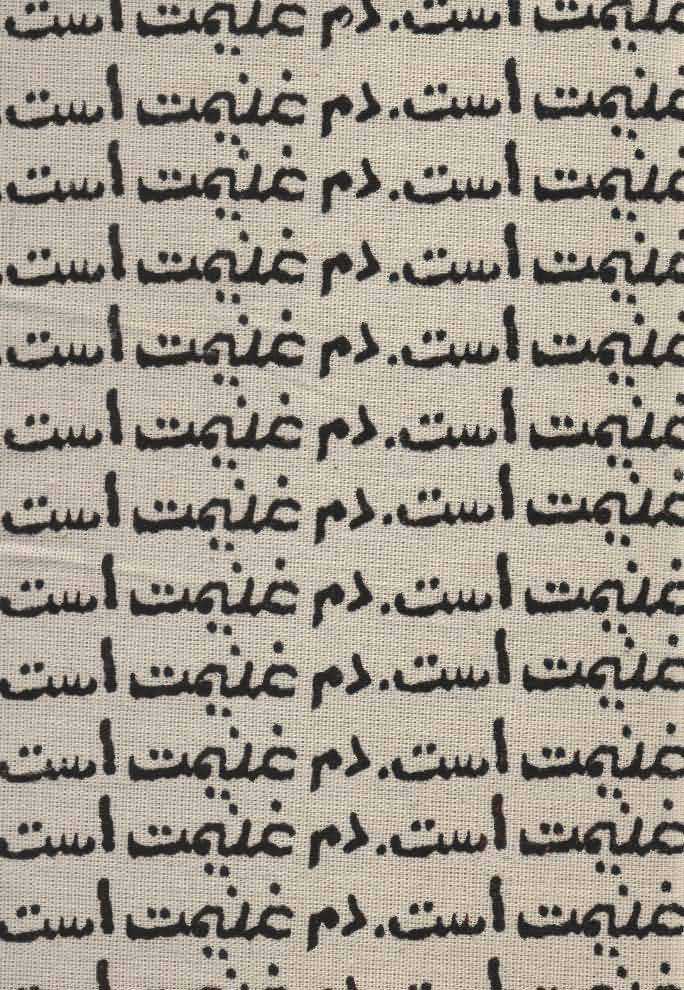 غنیمت است. دم غنیمت است
غنیمت است. دم غنیمت است.
غنیمت است. دم غنیمت است.
غنیمت است. دم غنیمت است.
غنیمت است. دم غنیمت است.
غنیمت است. دم غنیمت است
غنیمت است. دم غنیمت است
غنیمت است. دم غنیمت است
غنیمت است. دم غنیمت است
غنیمت است. دم غنیمت است
غنیمت است. دم غنیمت است
غنیمت است. دم غنیمت است